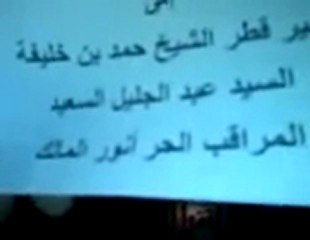 إلى
ير قطر الشيخ حمد بن خليفة
السيد عبد الجليل السعيد
المراقب الحر أنور المالك